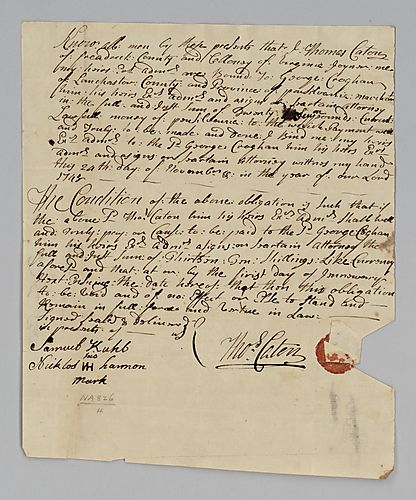 Know all men by these presents that I Thomas Caton
of freaderick County and Colloney of virginia Joyner: me
my heirs: Exrs admrs are Bound To: George Croghan
of Lanchaster County: and Province of pensilvania: merchant
him: his heirs Exrs admrs and asigns or Sartain attorney
in the full and Just Sum of Twenty pounds Current
Lawfull money of pensilvania: to the which Payment well
and Truly: to be: made and Done I Bind me: my heirs
Exrs admrs to: the Sd George Croghan him his heirs Exrs
admrs and asigns or Sartain attorney witnes my hand
this 24th day: of November: in the year of our Lord
174
The Condition of the above obligation is Such that if
the above Sd Thos Caton him his heirs Exrs admrs Shall well
and Truly: pay: or Cause to: be paid to the Sd George Croghan
him his heirs Exrs admrs asigns: or Sartain attorney the
full and Just Sume of Thirteen: Shillings: Like Currency
aforesd and that: at or: by the first day of
Next: Ensuing: the: date here of that then this obligation
to: be: Void and of no: Effect or Else to Stand and
Remain in full force and vertue in Law:
Signed Sealed & Delivered
in presents: of
Samuel Kuhl
his
Nicklos H harmon
mark
Thos Caton
NA826
4